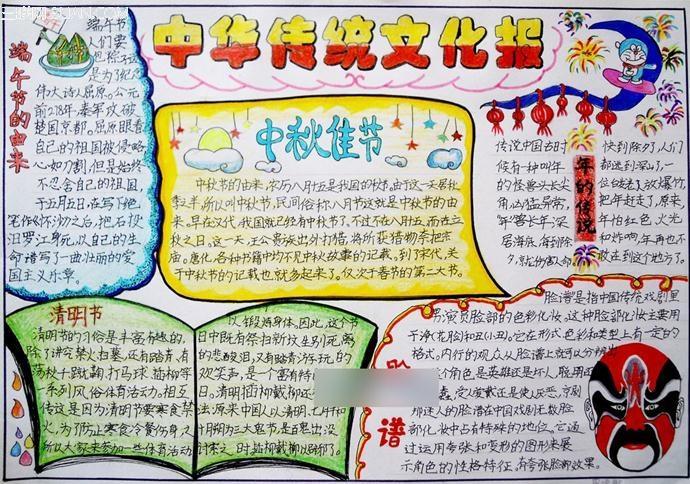 中华传统文化报
端午节的由来
端午节
人们要
是为了纪念
伟大诗人屈原。公元
前278年,秦军攻破
楚国京都。屈原眼看
自己的祖国被侵略
心如刀割,但是始终
不忍舍自己的祖国
于五月五日,在写下绝
笔作《怀沙》之后,把石投
汨罗江身死,以自己的生
命谱写了一曲壮丽的爱
国主义乐章。
中秋佳节
中秋节的由来,农历八月十五是我国的
季 半,所以叫中秋节,民间俗称八月节这就是中秋节的由
来。早在汉代,我国就已经有中秋节了,不过不在八月十五,而在立
秋之日,这一天,王公贵族出外打猎,将所获猎物祭把宗
庙。唐化,各种书籍中均不见中秋故事的记载,到了宋代,关
于中秋节的记载也就多起来了。仅次于春节的第二大节。
年的传说
传说中国古时
候有一种叫年
的怪兽头长尖
角,凶猛异常,
年兽长年深
居海底,每到除
夕,
快到除夕人们
都逃到深山,一
位 放爆竹,
把年赶走了,原来,
年怕红色,火光
和炸响,年再也不
敢到这个地方了。
清明节
清明节的习俗是丰富有趣的,
除了讲究禁火扫墓,还有踏青,有
荡秋千 蹴鞠 打马球 插柳等一
系列风俗体育活动。相
传这是因为清明节要寒食禁
火,为了防止寒食冷餐伤身,
所以大家来参加一些体育活动
以锻炼身体,因此,这个节
日中既有祭扫新坟生别死离
的悲酸泪,又有踏青游玩的
欢笑声,是一个富有特
清明插柳戴柳
法原来中国人以清明、七月
十月朔为三大鬼节,是百鬼出没
讨索之时 插柳戴柳以辟邪了。
脸谱
脸谱是指中国传统戏剧里
男演员脸部的色彩化妆,这种脸部化妆主要用
于净(花脸)和丑(小丑)。它在形式 色彩和类型上有一定的
格式。内行的观众从脸谱上就可以分辨出
个角色是英雄还是坏人,聪明
蠢,受人爱戴还是使人厌恶,京剧
那迷人的脸谱在中国戏剧无数脸
部化妆中占有特殊的地位,它通
过运用夸张和变形的图形来展
示角色的性格特征,有夸张脸部效果。